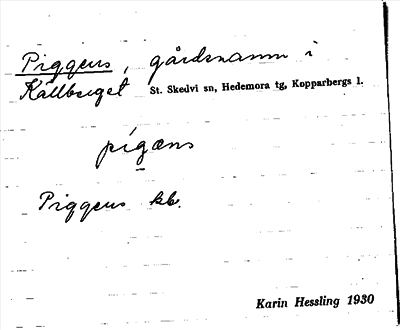 Piggens, gårdsnamn i
Källberget St. Skedvi sn, Hedemora tg, Kopparbergs l.
pigæns
Piggens kb.
Karin Hessling 1930